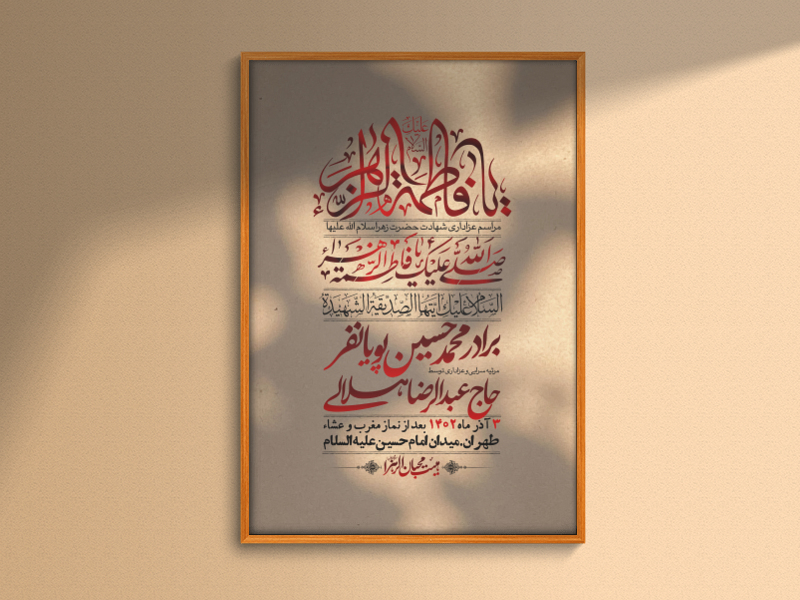 یا فاطمة الزهراء
علیك السلام
مراسم عزاداری شهادت حضرت زهرا سلام الله علیها
صلی الله علیک یا فاطمة الزهراء
السلام علیك ایتها الصدیقة الشهیدة
برادر محمد حسین پویانفر
مرثیه سرایی و عزاداری توسط
حاج عبدالرضا هلالی
۳ آذر ماه ۱۴۰۲ بعد از نماز مغرب و عشاء
طهران، میدان امام حسین علیه السلام
هیئت محبان الزهرا